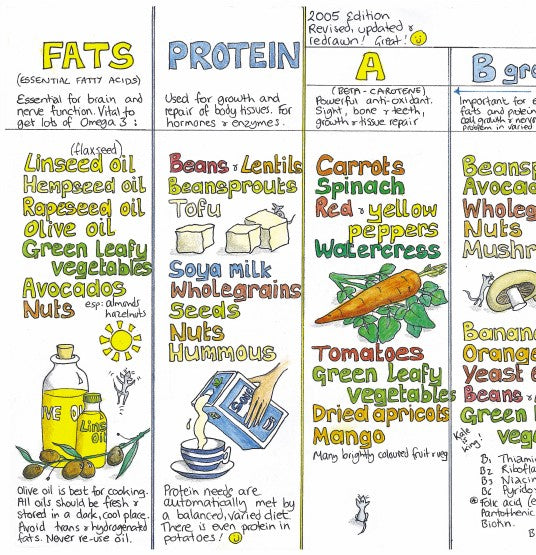 2005 Edition
Revised, updated &
redrawn! Great!
FATS
(ESSENTIAL FATTY ACIDS)
Essential for brain and
nerve function. Vital to
get lots of Omega 3:
(flaxseed)
Linseed oil
Hempseed oil
Rapeseed oil
Olive oil
Green leafy
vegetables
Avocados
Nuts esp: almonds
hazelnuts
IVE OIL
Linse
Oil
Olive oil is best for cooking.
All oils should be fresh &
stored in a dark, cool place.
Avoid trans & hydrogenated
fats. Never re-use oil.
PROTEIN
Used for growth and
repair of body tissues. For
hormones & enzymes.
Beans & Lentils
Beansprouts
Tofu
Soya milk
Wholegrains
Seeds
Nuts
Hummous
SOYA
Protein needs are
automatically met by
a balanced, varied diet.
There is even protein in
potatoes!
A
(BETA-CAROTENE)
Powerful anti-oxidant.
Sight, bone & teeth,
growth & tissue repair
Carrots
Spinach
Red & yellow
peppers
Watercress
Tomatoes
Green leafy
vegetables
Dried apricots
Mango
Many brightly coloured fruit & veg
B gr
Important for e
fats and protein
cell growth & nerv
problem in varied
Beansp
Avocad
Wholeg
Nuts
Mushr
Banan
Orange
Yeast e
Beans &
Green l
vege
Kale
is
king!
B₁ Thiami
B₂ Ribofla
B₃ Niacin
B₆ Pyrido
Folic acid (
Pantothenic
Biotin.
B